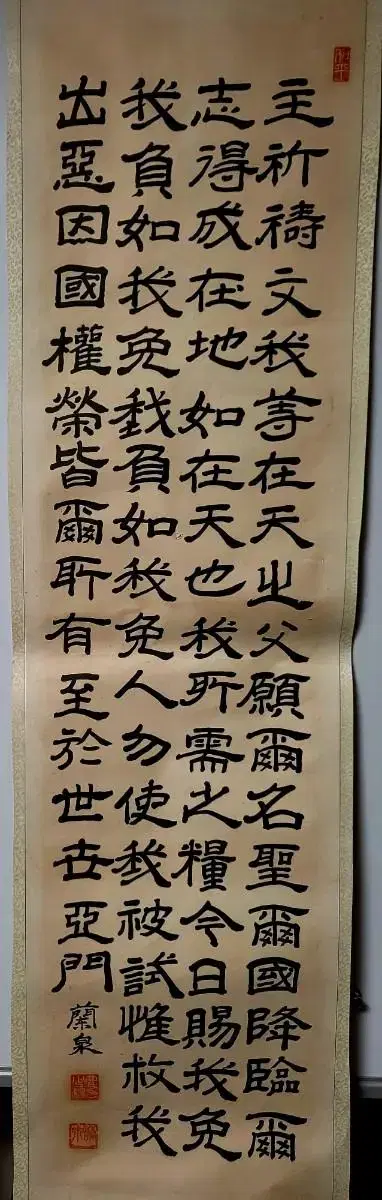 主祈禱文我等在天之父願爾名聖爾國降臨爾
志得成在地如在天也我所需之糧今日賜我免
我負如我免我負如我免人勿使我被試惟救我
出惡因國權榮皆爾所有至於世世亞門
蘭泉